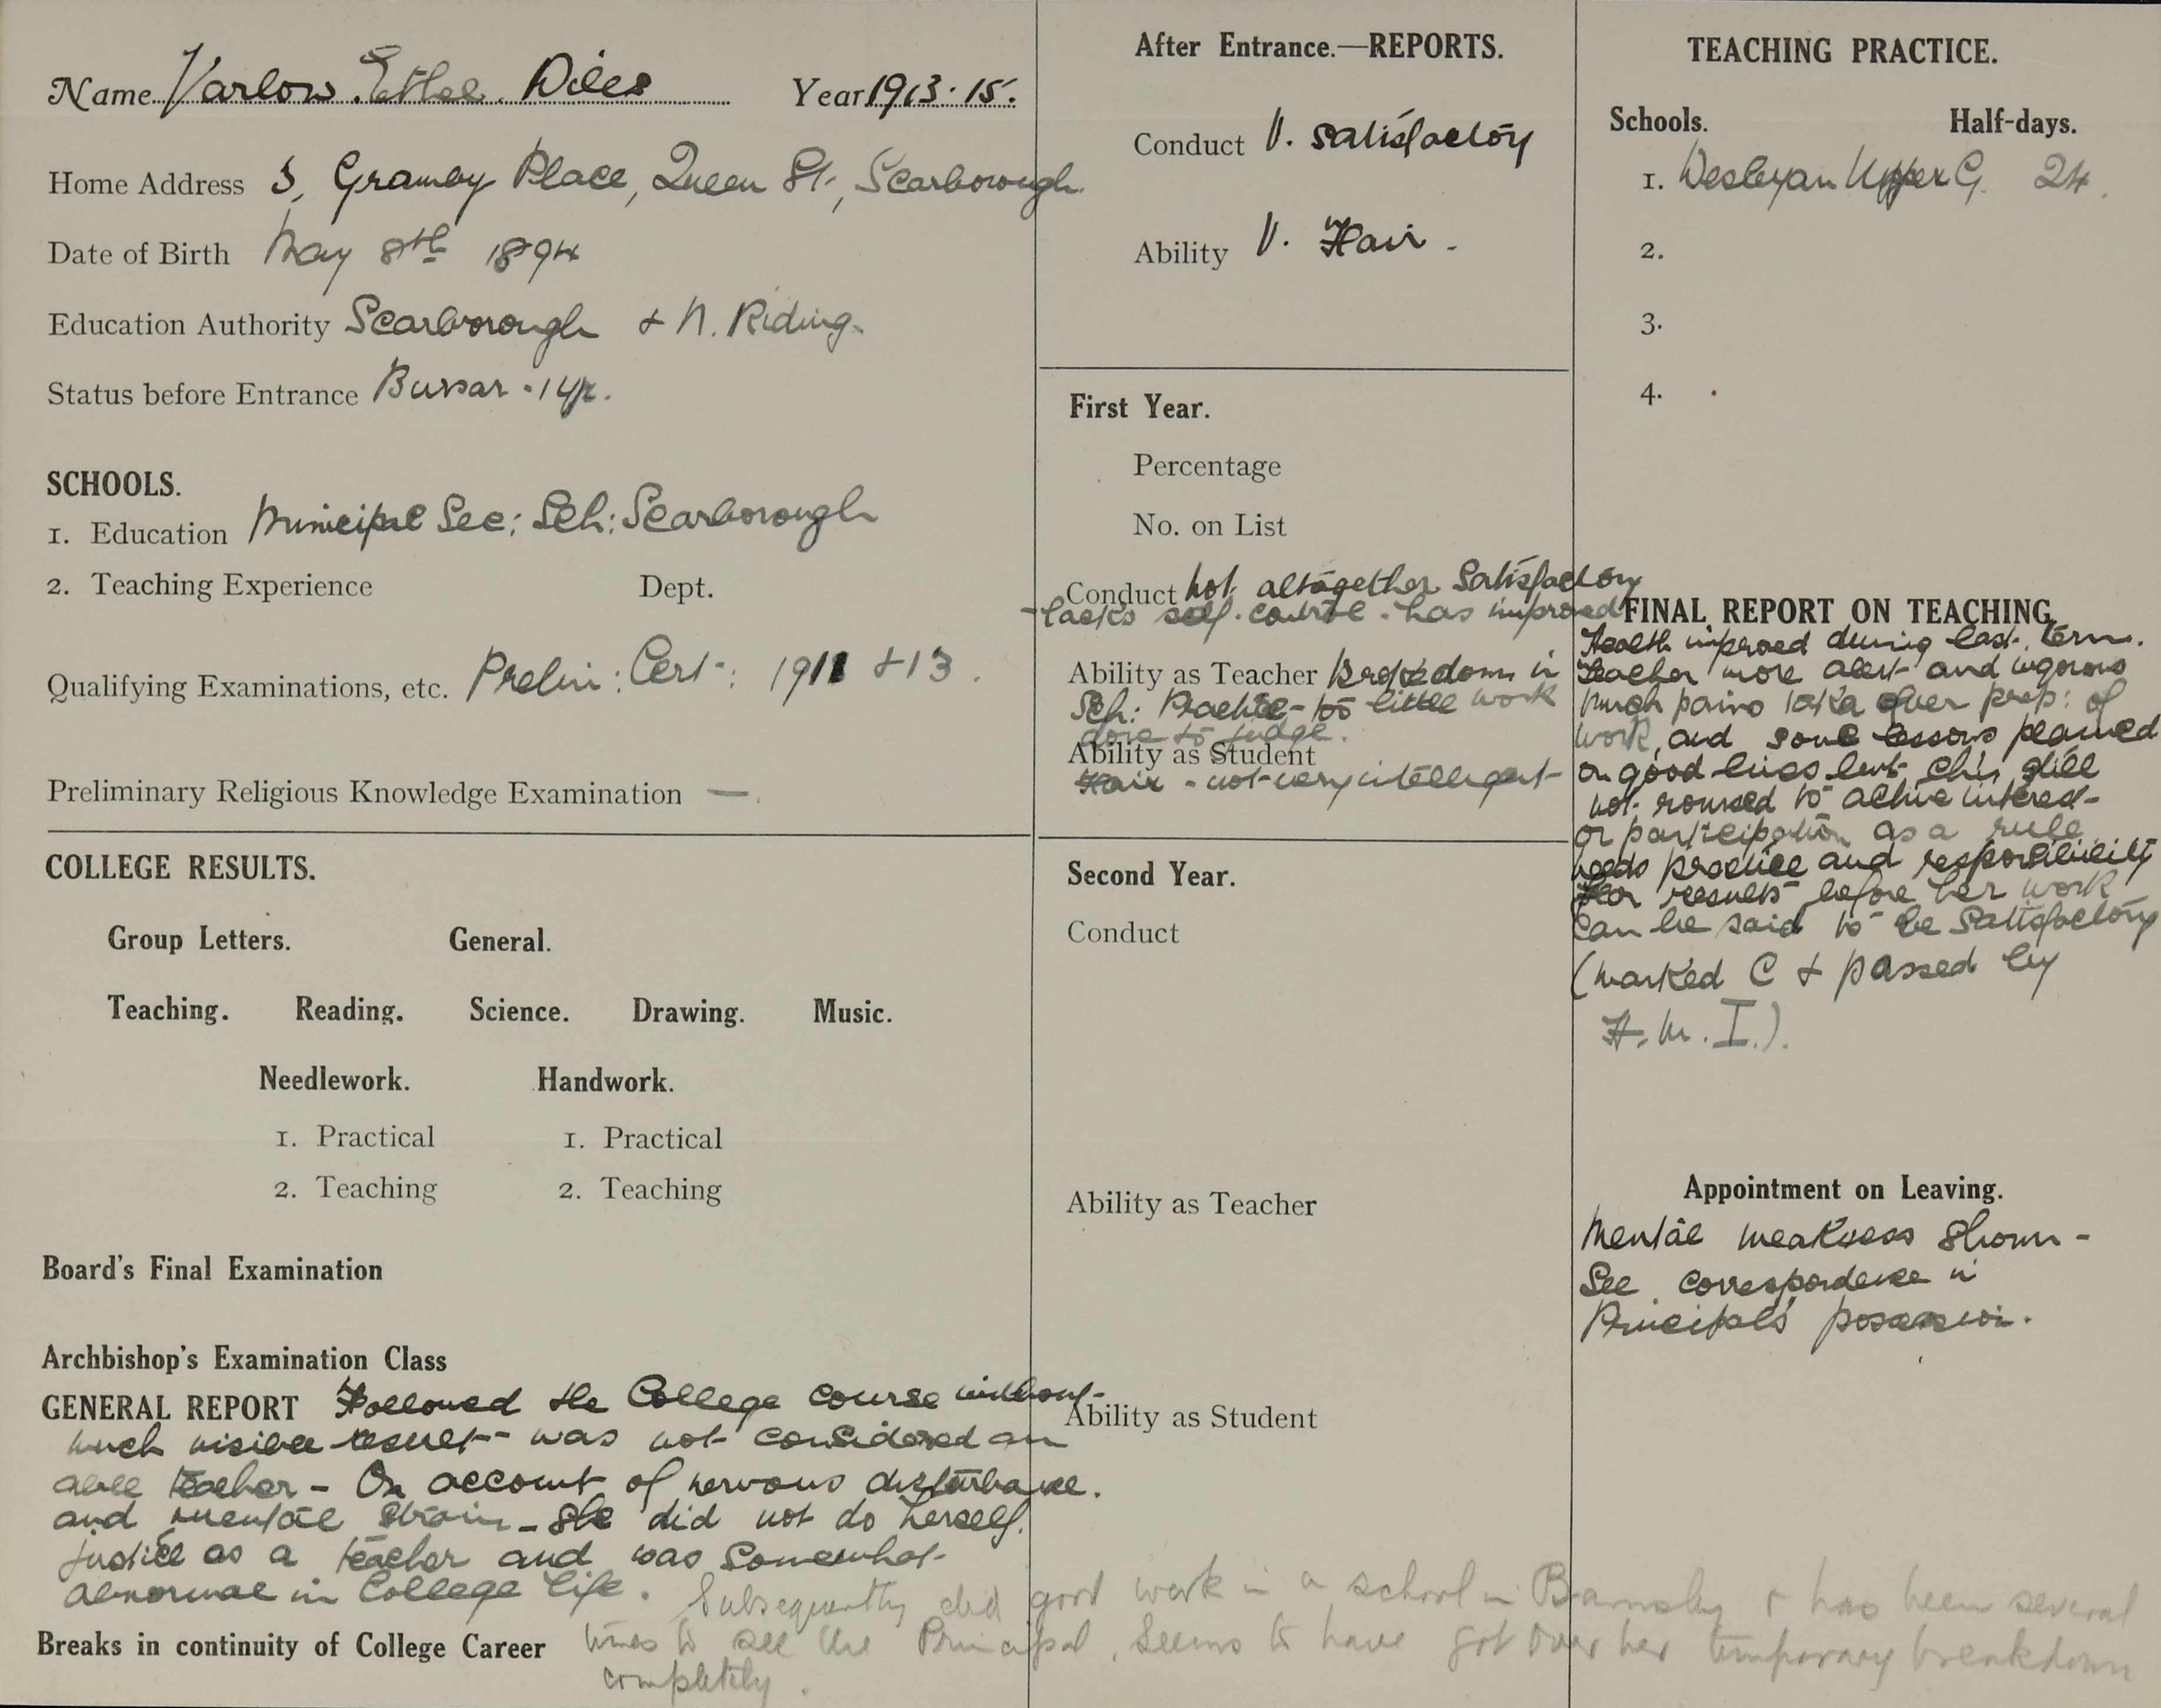 Name Varlow. Ethel. Dilés Year 1913-15.
Home Address 3, Gramby Place, Queen St., Scarborough.
Date of Birth May 8th 1894
Education Authority Scarborough & N. Riding.
Status before Entrance Bursar - 1 yr.
SCHOOLS.
1. Education Municipal Sec: Sch: Scarborough
2. Teaching Experience Dept.
Qualifying Examinations, etc. Prelim: Cert: 1911 & 13.
Preliminary Religious Knowledge Examination —
COLLEGE RESULTS.
Group Letters. General.
Teaching. Reading. Science. Drawing. Music.
Needlework. Handwork.
1. Practical 1. Practical
2. Teaching 2. Teaching
Board's Final Examination
Archbishop's Examination Class
GENERAL REPORT Followed the College course without
much visible result - was not considered an
able teacher - On account of nervous disturbance.
and mental strain - she did not do herself
justice as a teacher and was somewhat
abnormal in College life. Subsequently did good work in a school in Barnsley & has been several
Breaks in continuity of College Career times to see the Principal. Seems to have got over her temporary breakdown
completely.
After Entrance.—REPORTS.
Conduct V. satisfactory
Ability V. Fair.
First Year.
Percentage
No. on List
Conduct Not altogether Satisfactory
- lacks self-control - has improved
Ability as Teacher Broke down in
Sch: Practice - too little work
done to judge.
Ability as Student
Fair - not very intelligent
Second Year.
Conduct
Ability as Teacher
Ability as Student
TEACHING PRACTICE.
Schools. Half-days.
1. Wesleyan Upper G. 24.
2.
3.
4.
FINAL REPORT ON TEACHING
Health improved during last term.
Teacher more alert and vigorous
Much pains taken over prep: of
work, and some lessons planned
on good lines but chn still
not roused to active interest
or participation as a rule
needs practice and responsibility
for results before her work
can be said to be satisfactory
(marked C & passed by
H.M.I.).
Appointment on Leaving.
Mental weakness shown -
See correspondence in
Principal's possession.